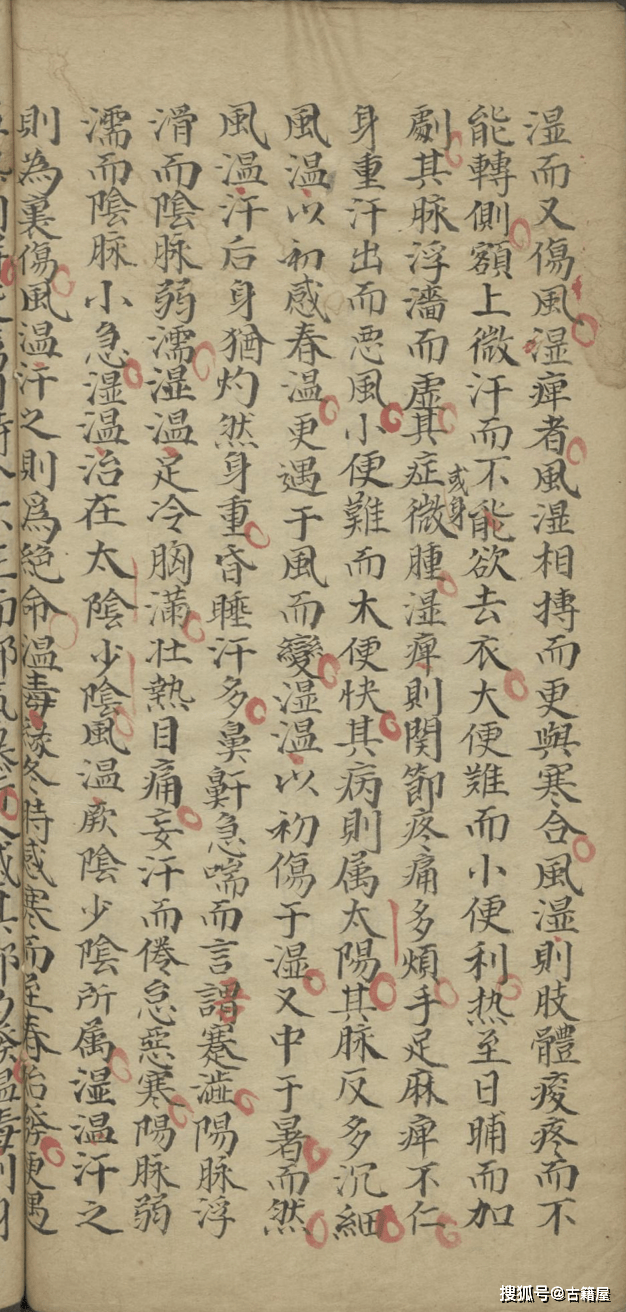 湿而又傷風湿痺者風湿相摶而更與寒合風湿則肢體痠疼而不
能轉側額上微汗而不能欲去衣大便難而小便利热至日晡而加
劇其脉浮濇而虚其症微腫湿痺則関節疼痛多煩手足麻痺不仁
或身
身重汗出而恶風小便難而大便快其病則属太陽其脉反多沉細
風温以初感春温更遇于風而變湿温以初傷于湿又中于暑而然
風温汗后身猶灼然身重昏睡汗多鼻鼾急喘而言謂蹇澁陽脉浮
滑而陰脉弱濡湿温足冷胸满壮熱目痛妄汗而倦怠惡寒陽脉弱
濡而陰脉小急湿温治在太陰少陰風温厥陰少陰所属湿温汗之
則為裏傷風温汗之則爲絶命温毒緣冬時感寒而至春始發更遇